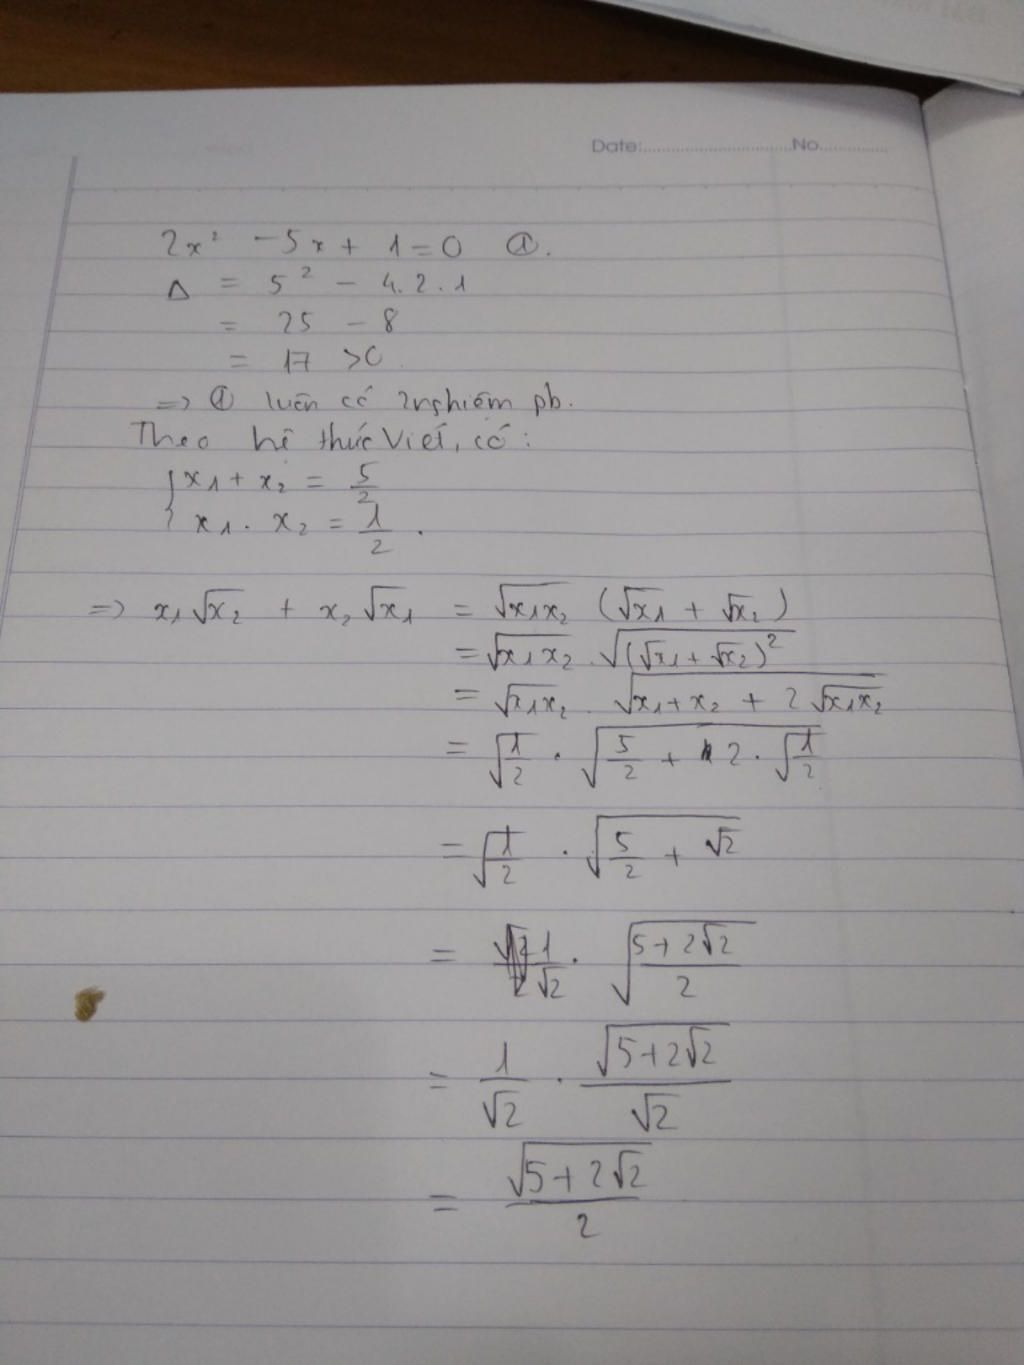 Date:..............................No..............
2x² - 5x + 1 = 0 ①.
Δ = 5² - 4.2.1
= 25 - 8
= 17 > 0.
=> ① luôn có 2 nghiệm pb.
Theo hệ thức Viét, có:
{ x₁ + x₂ = 5/2
x₁ . x₂ = 1/2 .
=> x₁√x₂ + x₂√x₁ = √(x₁x₂) (√x₁ + √x₂)
= √(x₁x₂) . √((√x₁ + √x₂)²)
= √(x₁x₂) . √(x₁ + x₂ + 2√(x₁x₂))
= √(1/2) . √(5/2 + 2 . √(1/2))
= √(1/2) . √(5/2 + √2)
= 1/√2 . √((5 + 2√2)/2)
= 1/√2 . √(5 + 2√2)/√2
= √(5 + 2√2)/2